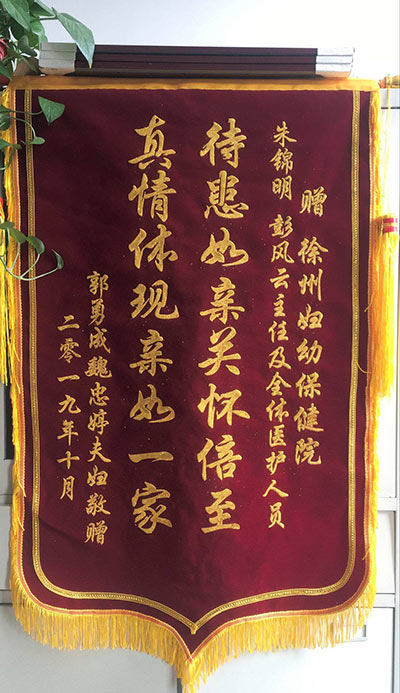 赠 徐州妇幼保健院
朱锦明 彭风云主任及全体医护人员
待患如亲关怀倍至
真情体现亲如一家
郭勇成魏忠婷夫妇敬赠
二零一九年十月